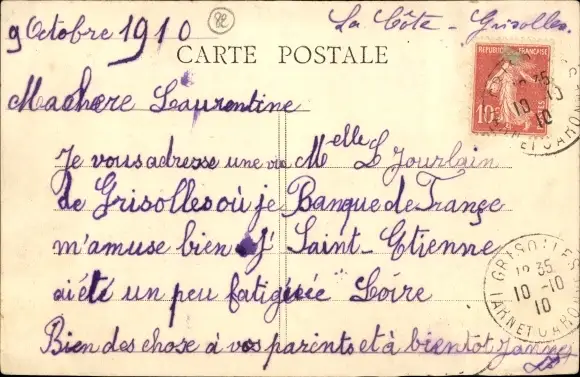 9 Octobre 1910
La Côte - Grisolles.
CARTE POSTALE
REPUBLIQUE FRANÇAISE
10
Ma chere Laurentine
Je vous adresse une vue
de Grisolles où je
m'amuse bien J'
ai été un peu fatiguée
Melle L Jourlain
Banque de France
Saint-Etienne
Loire
Bien des chose à vos parents et à bientôt
GRISOLLES
12 35
10 -10
10
TARN ET GARONNE